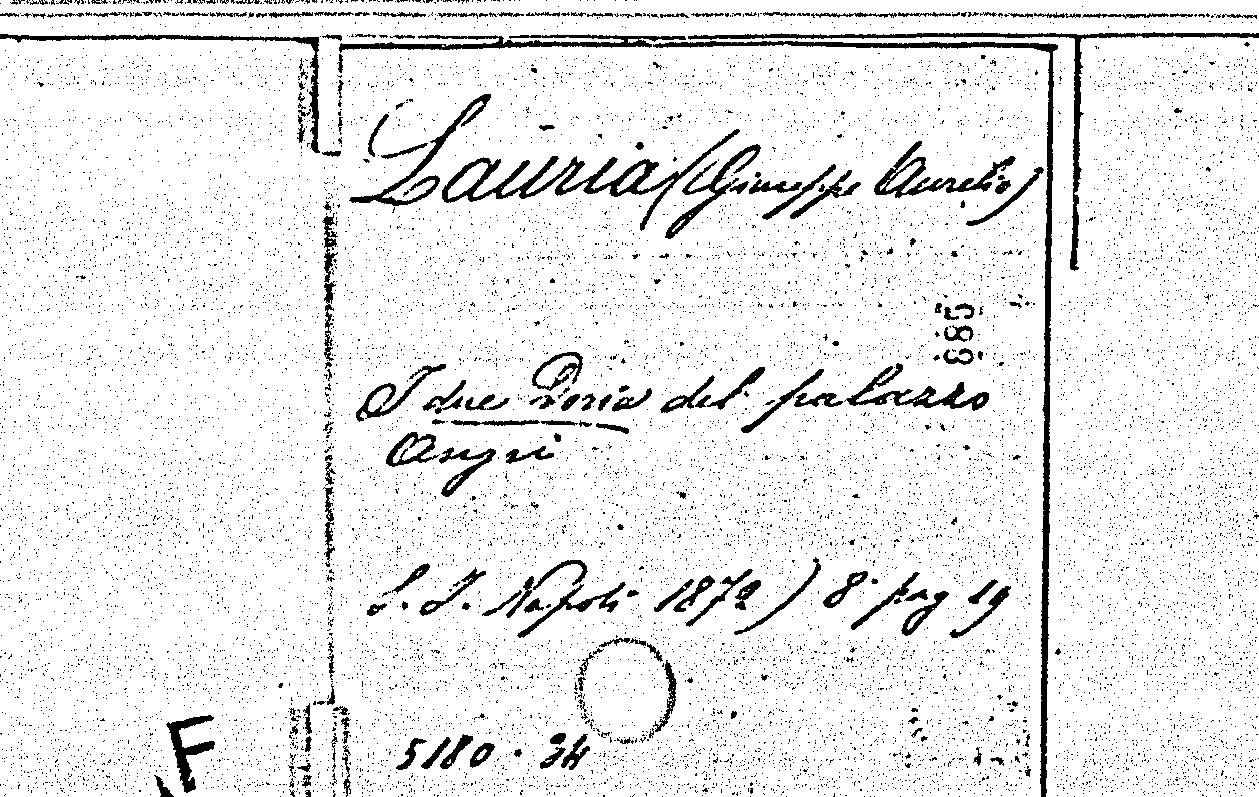 Lauria (Giuseppe Aurelio)
685
I due Doria del palazzo
Angri
S. I. Napoli 1872) 8° pag 19
5180 · 34
F